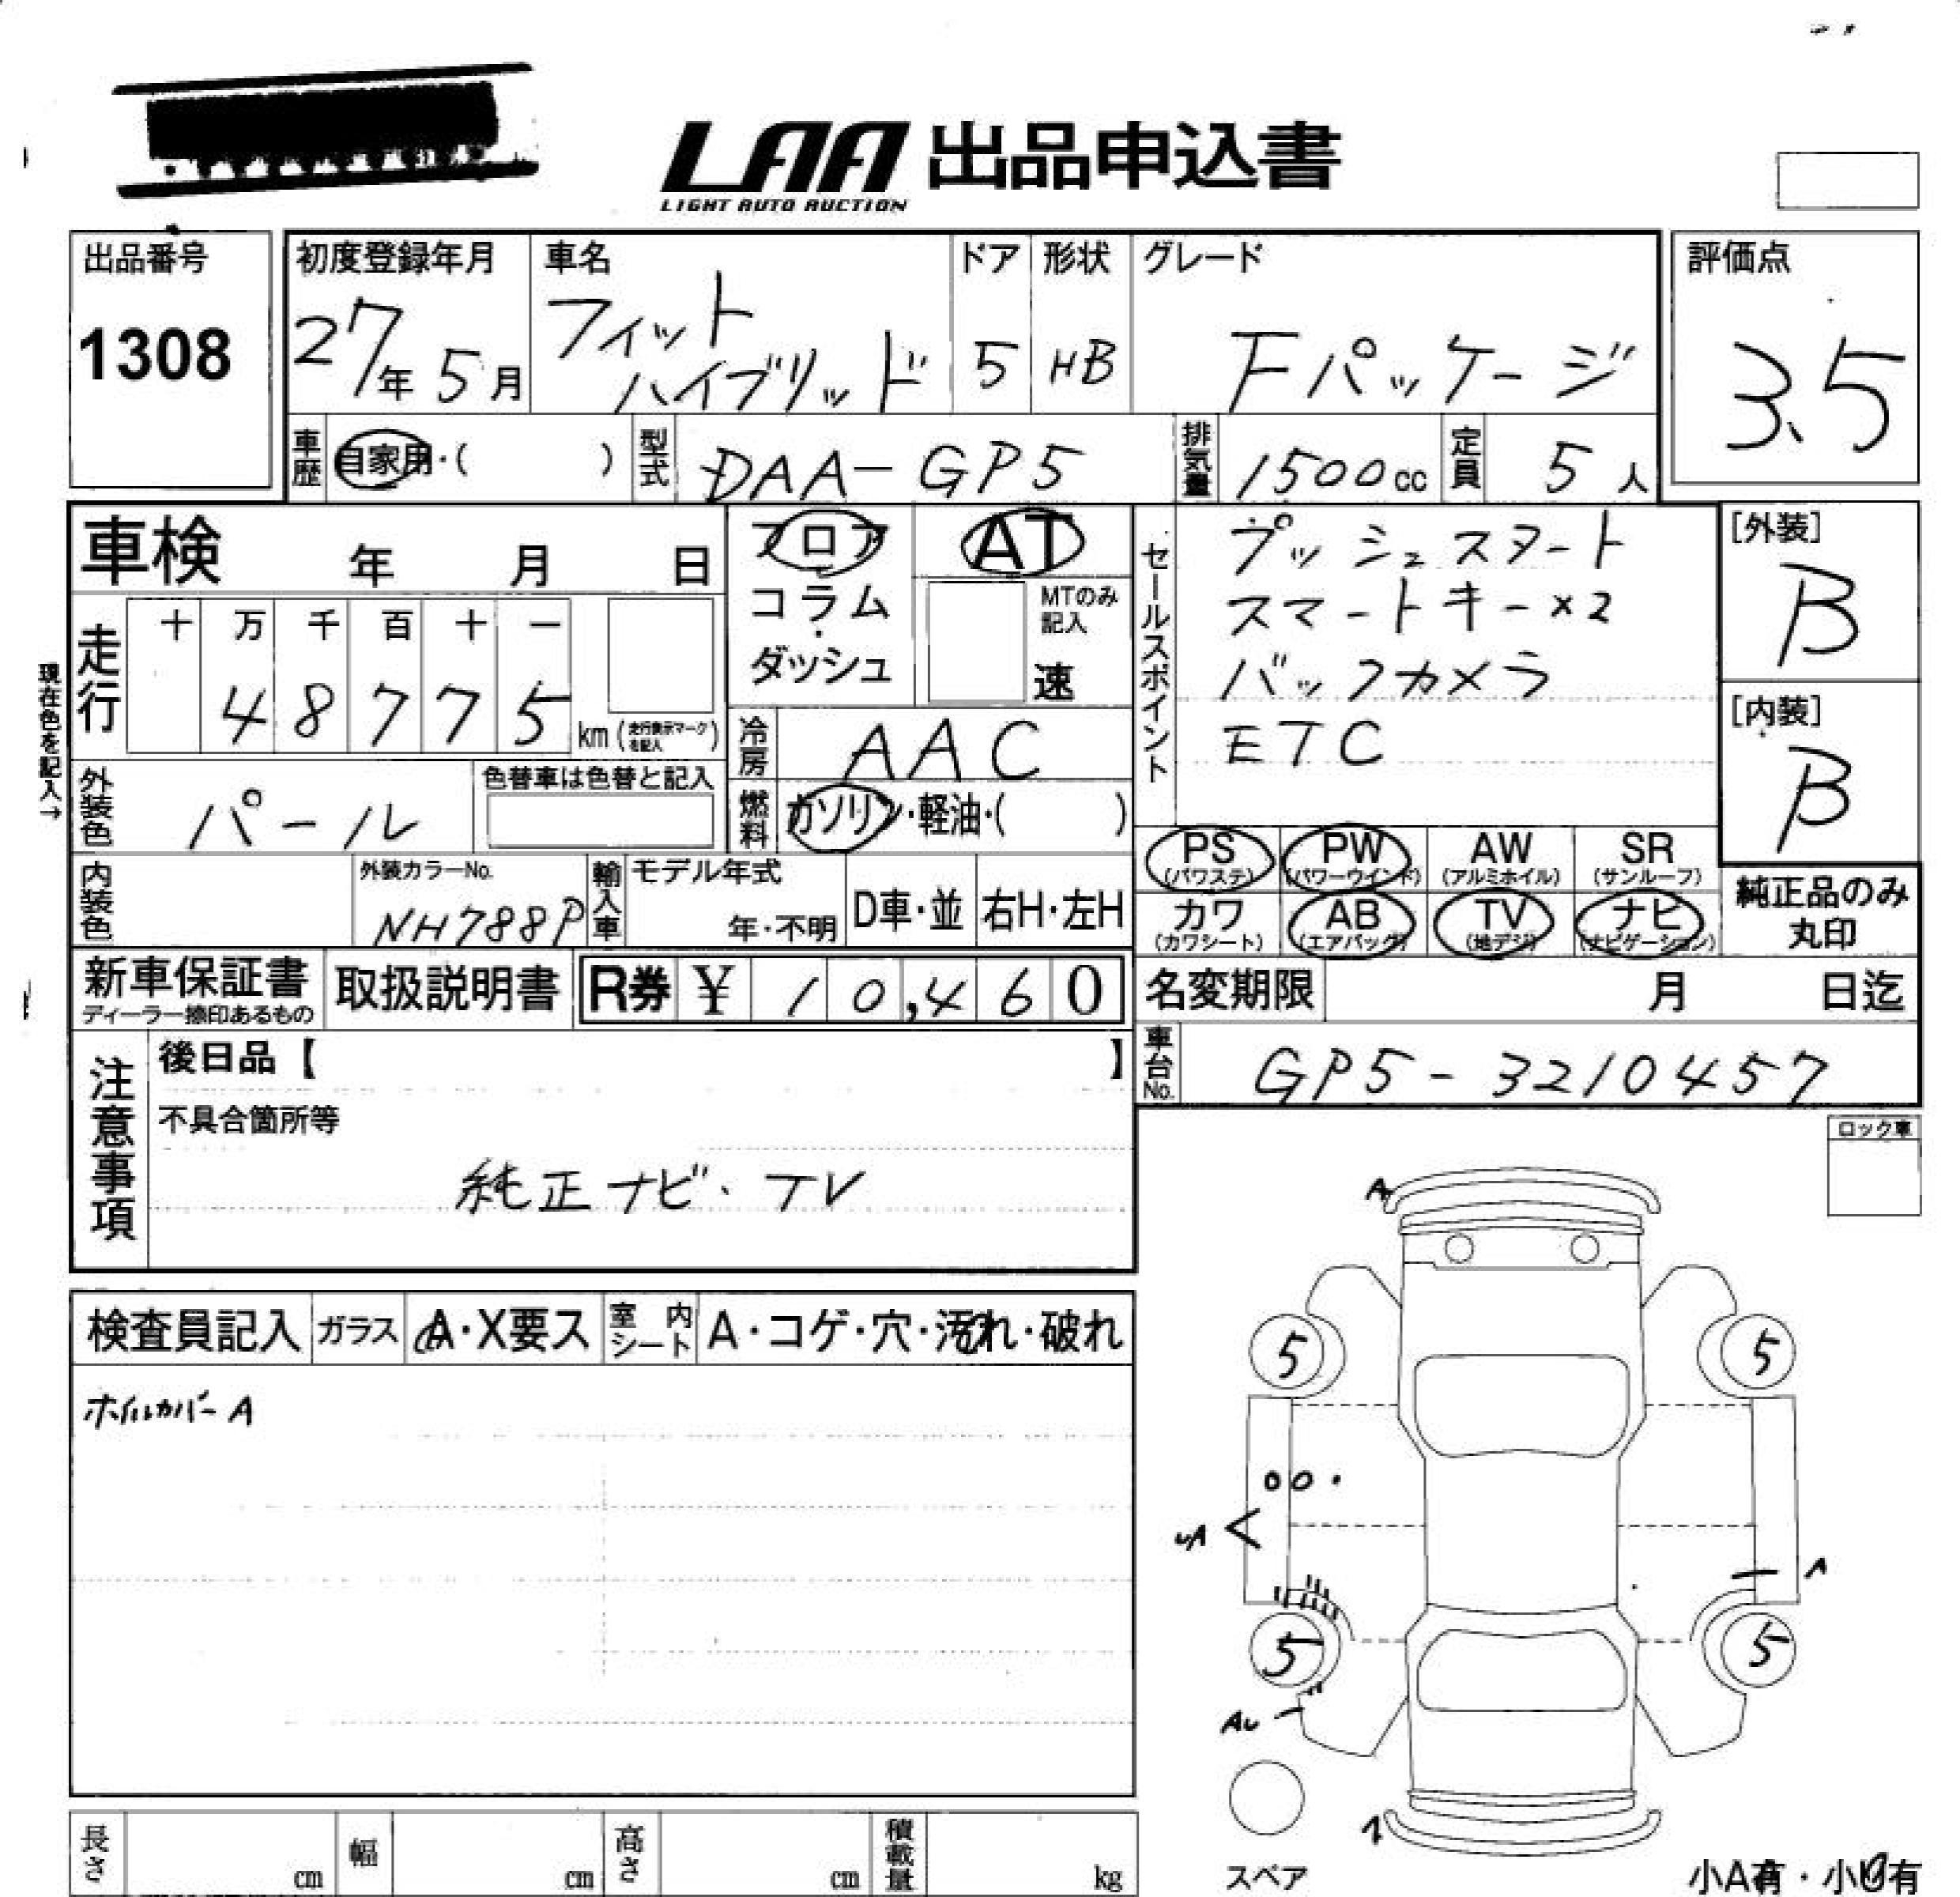 LAA 出品申込書
LIGHT AUTO AUCTION
出品番号
1308
初度登録年月
27年5月
車名
フィット
ハイブリッド
ドア
5
形状
HB
グレード
Fパッケージ
評価点
3.5
車歴
自家用・( )
型式
DAA-GP5
排気量
1500cc
定員
5人
車検 年 月 日
フロア
コラム
・
ダッシュ
AT
MTのみ
記入
速
セールスポイント
プッシュスタート
スマートキー×2
バックカメラ
ETC
[外装]
B
[内装]
B
現在色を記入→
走行
十 万 千 百 十 一
4 8 7 7 5
km (走行表示マークを記入)
冷房
AAC
外装色
パール
色替車は色替と記入
燃料
ガソリン・軽油・( )
PS
(パワステ)
PW
(パワーウインド)
AW
(アルミホイル)
SR
(サンルーフ)
カワ
(カワシート)
AB
(エアバッグ)
TV
(地デジ)
ナビ
(ナビゲーション)
純正品のみ
丸印
内装色
外装カラーNo.
NH788P
輸入車
モデル年式
年・不明
D車・並
右H・左H
新車保証書
ディーラー捺印あるもの
取扱説明書
R券 ¥ 10,460
名変期限 月 日迄
車台No.
GP5-3210457
注意事項
後日品【 】
不具合箇所等
純正ナビ・TV
ロック車
検査員記入
ガラス
A・X要ス
室内シート
A・コゲ・穴・汚れ・破れ
ホイルカバーA
A
5
5
A
5
5
スペア
長さ cm
幅 cm
高さ cm
積載量 kg
小A有・小U有